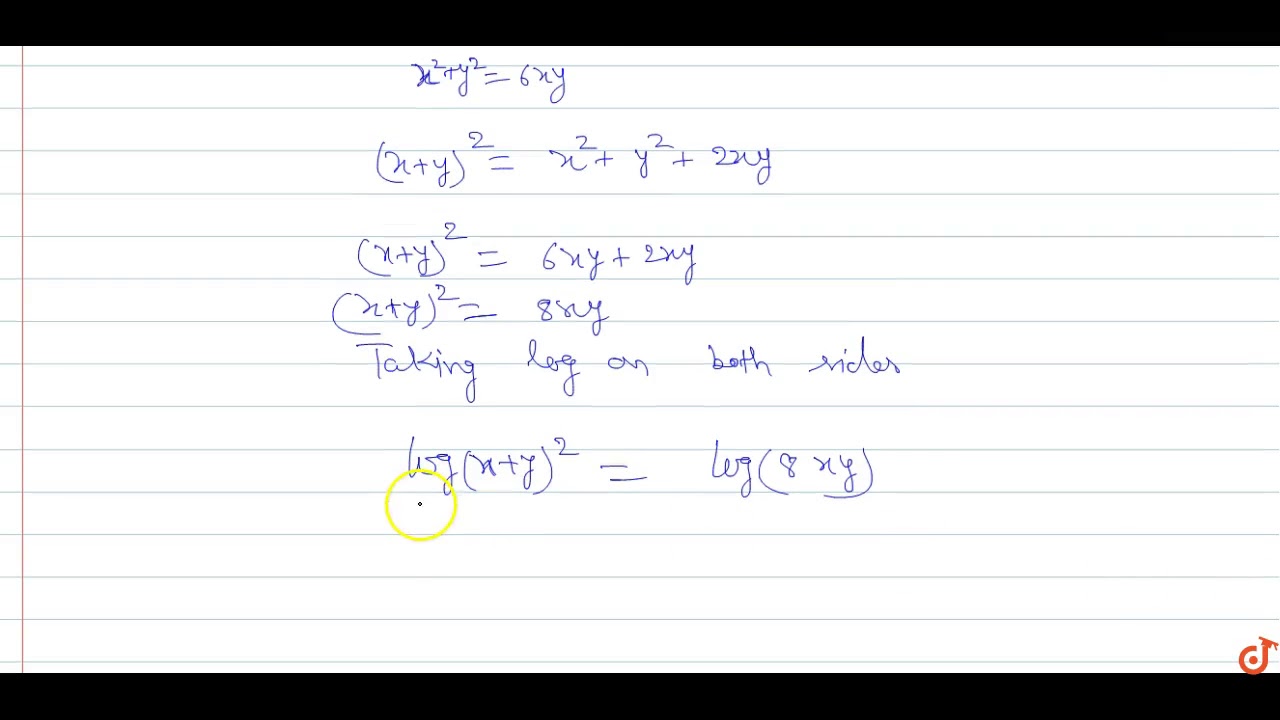 x²+y²=6xy
(x+y)²= x²+ y²+ 2xy
(x+y)² = 6xy+2xy
(x+y)²= 8xy
Taking log on both sides
log(x+y)² = log(8 xy)